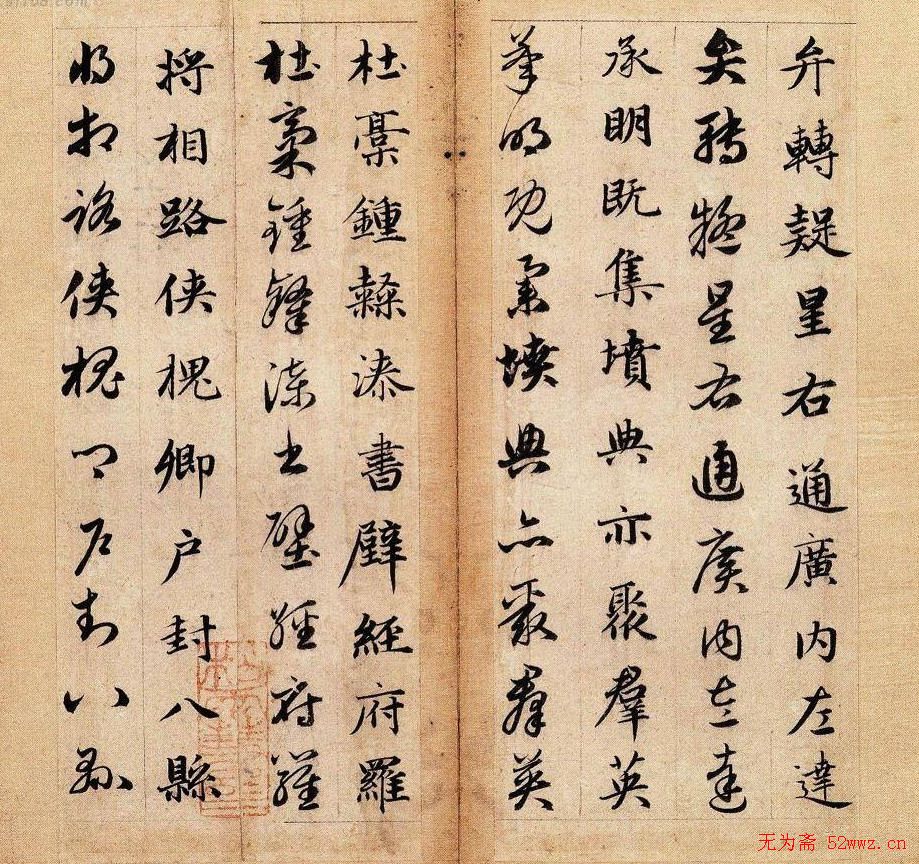 弁轉疑星右通廣内左達
弁轉疑星右通廣内左達
承明既集墳典亦聚羣英
承明既集墳典亦聚羣英
杜稾鍾隸漆書壁經府羅
杜稾鍾隸漆書壁經府羅
將相路俠槐卿户封八縣
將相路俠槐卿户封八縣
无为斋 52wwz.cn